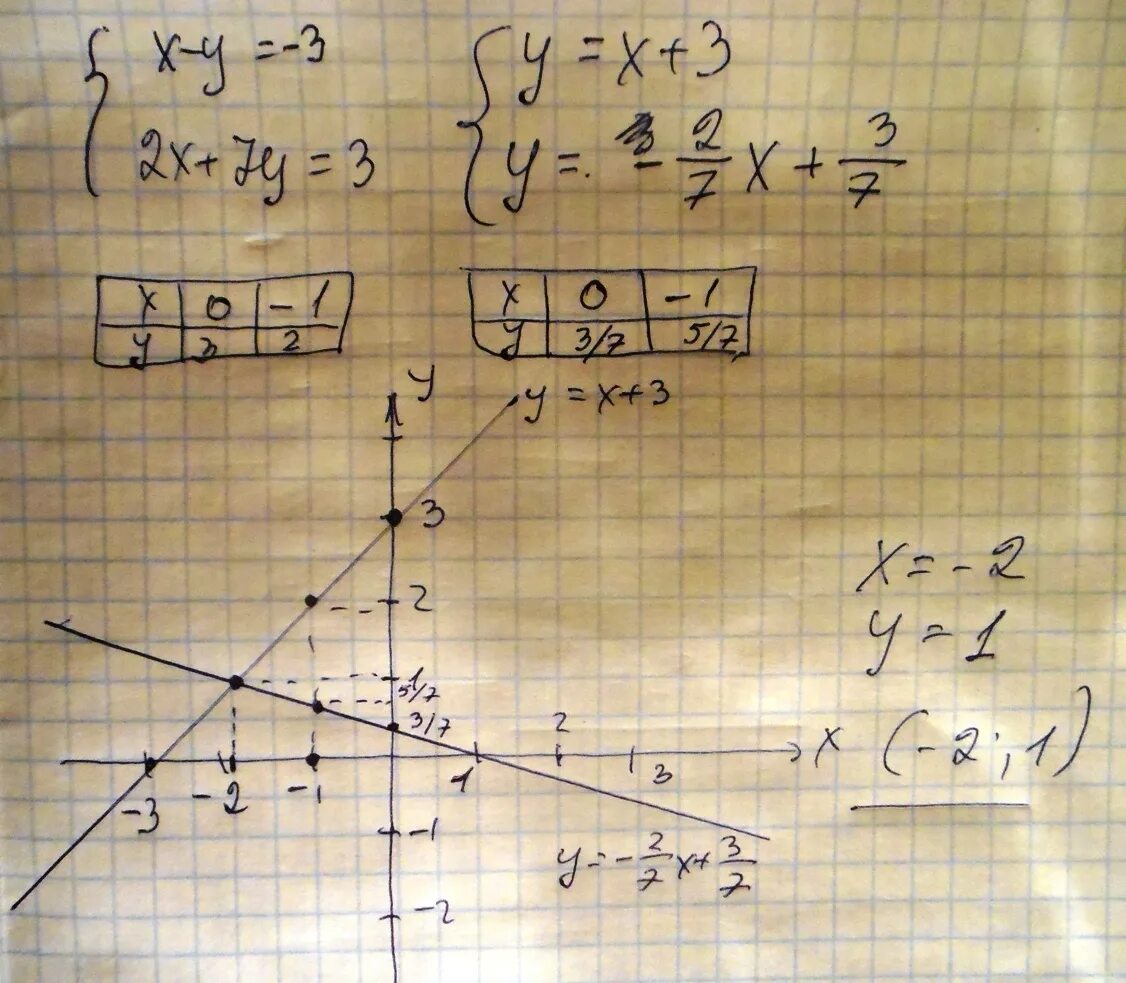 x-y=-3
2x+7y=3
y=x+3
y=. - 2/7 x + 3/7
x 0 -1
y 3 2
x 0 -1
y 3/7 5/7
y
y=x+3
3
2
1
5/7
3/7
-3 -2 -1 1 2 3 x
-1
-2
y=-2/7 x+3/7
x=-2
y=1
(-2;1)